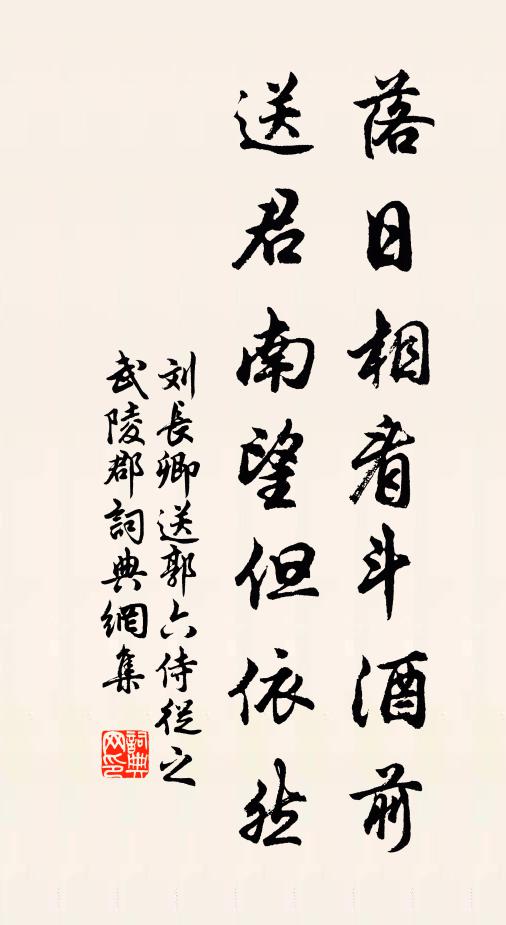 落日相看斗酒前
送君南望但依然
刘長卿送郭六侍從之
武陵郡詞典網集
詞典
网印